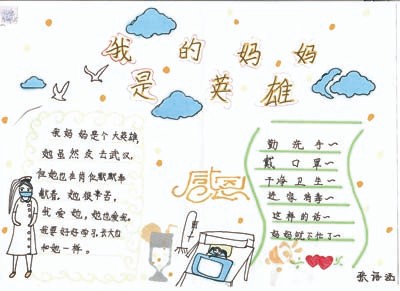 我的妈妈
是英雄
我妈妈是个大英雄,
她虽然没去武汉,
但她也在背后默默奉
献着。她很辛苦。
我爱她,她也爱我。
我要好好学习,长大后
和她一样。
感恩
勤洗手~
戴口罩~
干净卫生~
进家消毒~
这样的话~
妈妈就不忙了~
张语涵